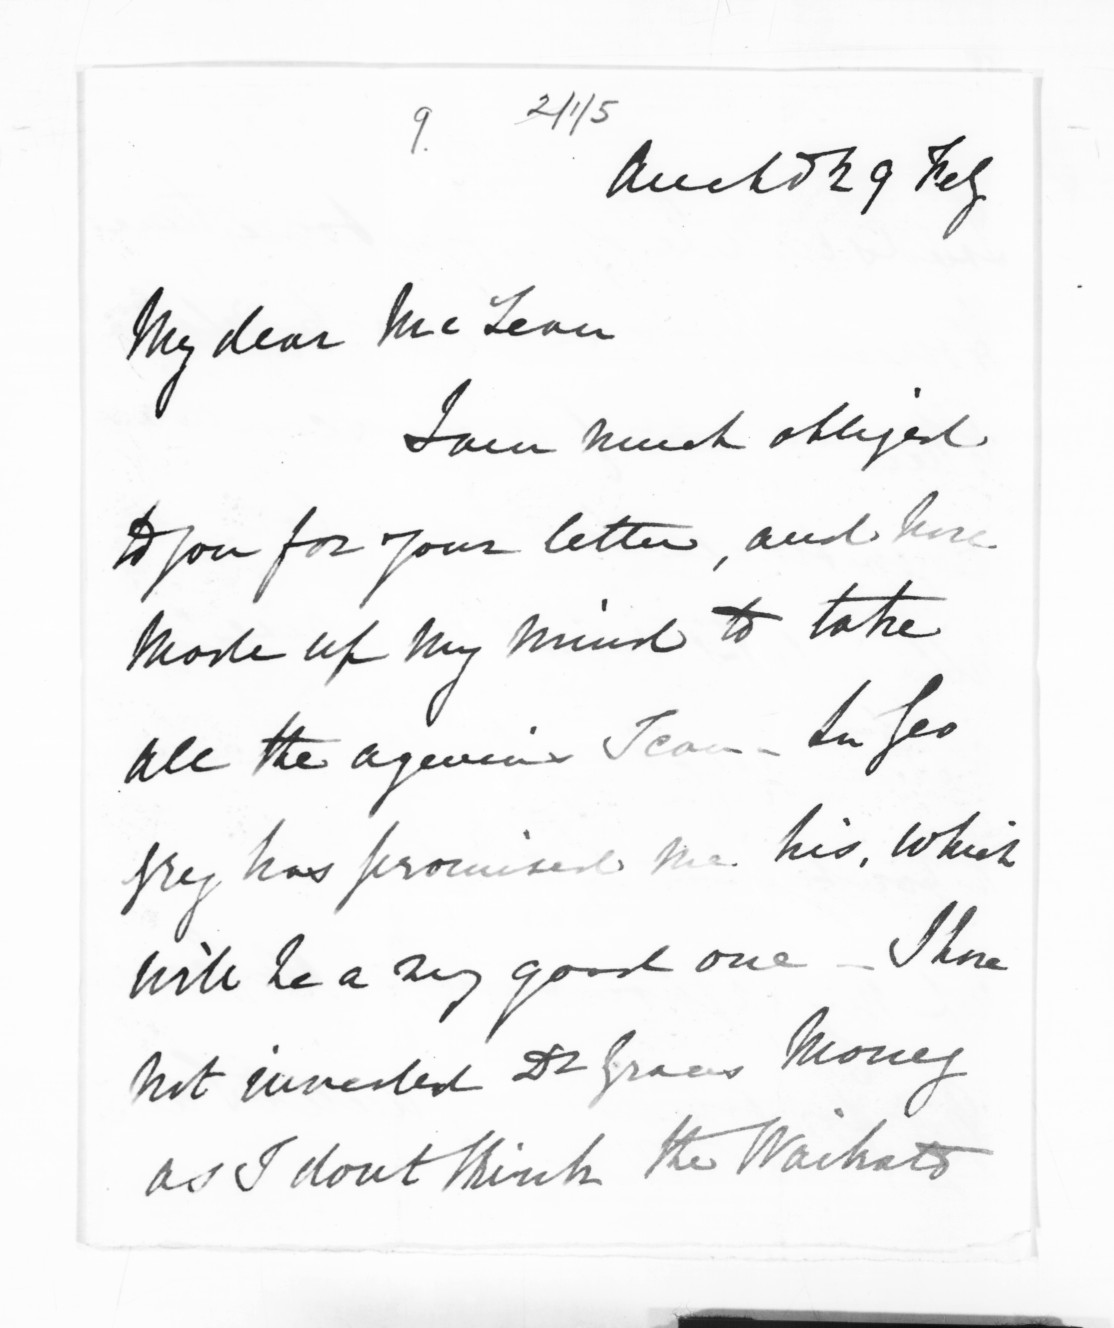 9. 2/1/5
Auckld 29 Feby
My dear McLean
I am much obliged
to you for your letter, and have
made up my mind to take
all the agencies I can - Sir Geo
Grey has promised me his, which
will be a very good one - I have
not invested Dr Graces money
as I dont think the Waikato